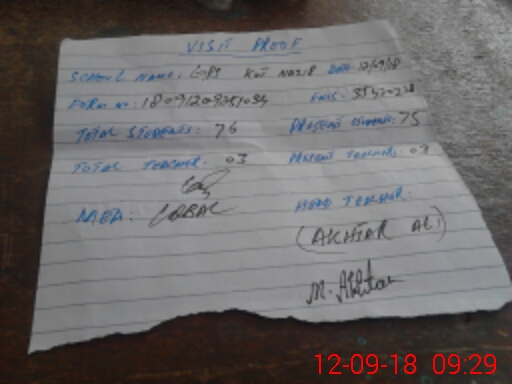 VISIT PROOF
SCHOOL NAME: GPS KOT NAZIR DATE: 12/09/18
FORM NO: EMIS:
TOTAL STUDENTS: 76 PRESENT STUDENTS: 75
TOTAL TEACHER: 03 PRESENT TEACHER: 03
MEA: IQBAL HEAD TEACHER:
(AKHTAR ALI)
M. Akhtar
12-09-18 09:29